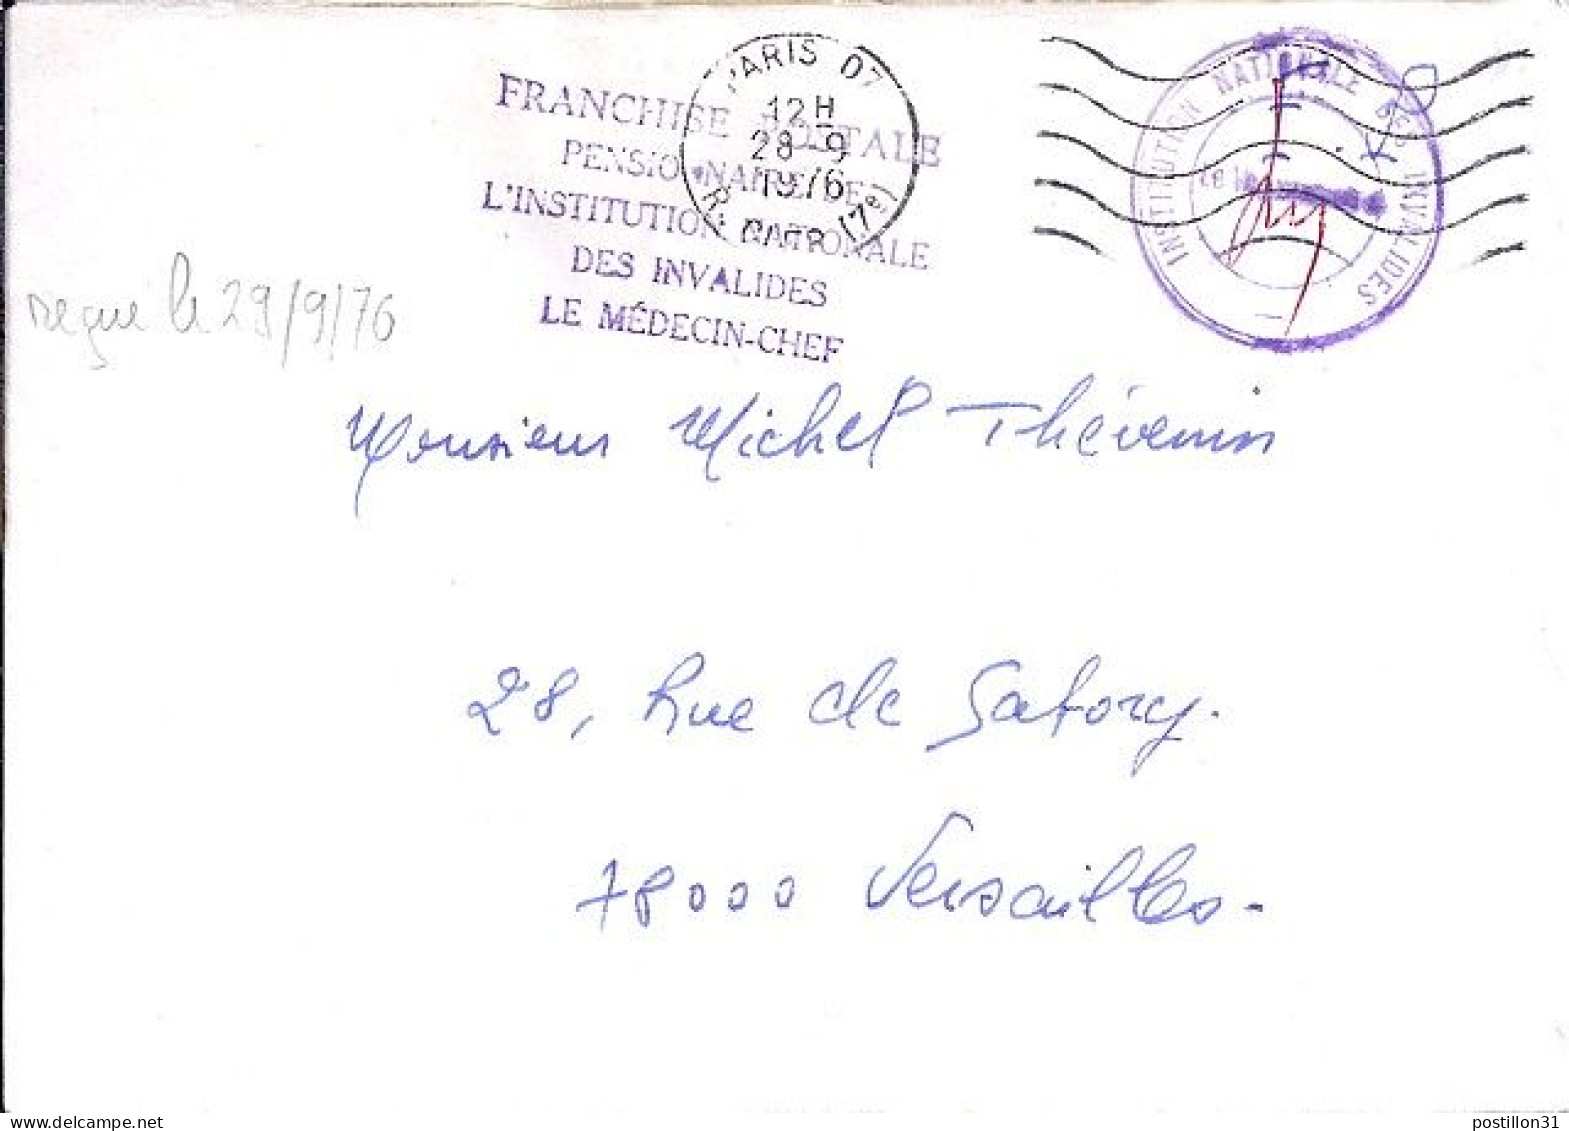 PARIS 07
12H
28-9
1976
R. CLER (7e)
FRANCHISE POSTALE
PENSIONNAIRE DE
L'INSTITUTION NATIONALE
DES INVALIDES
LE MÉDECIN-CHEF
INSTITUTION NATIONALE DES INVALIDES
reçue le 29/9/76
Monsieur Michel Thévenin
28, Rue de Satory.
78000 Versailles-
www.delcampe.net
postillon31